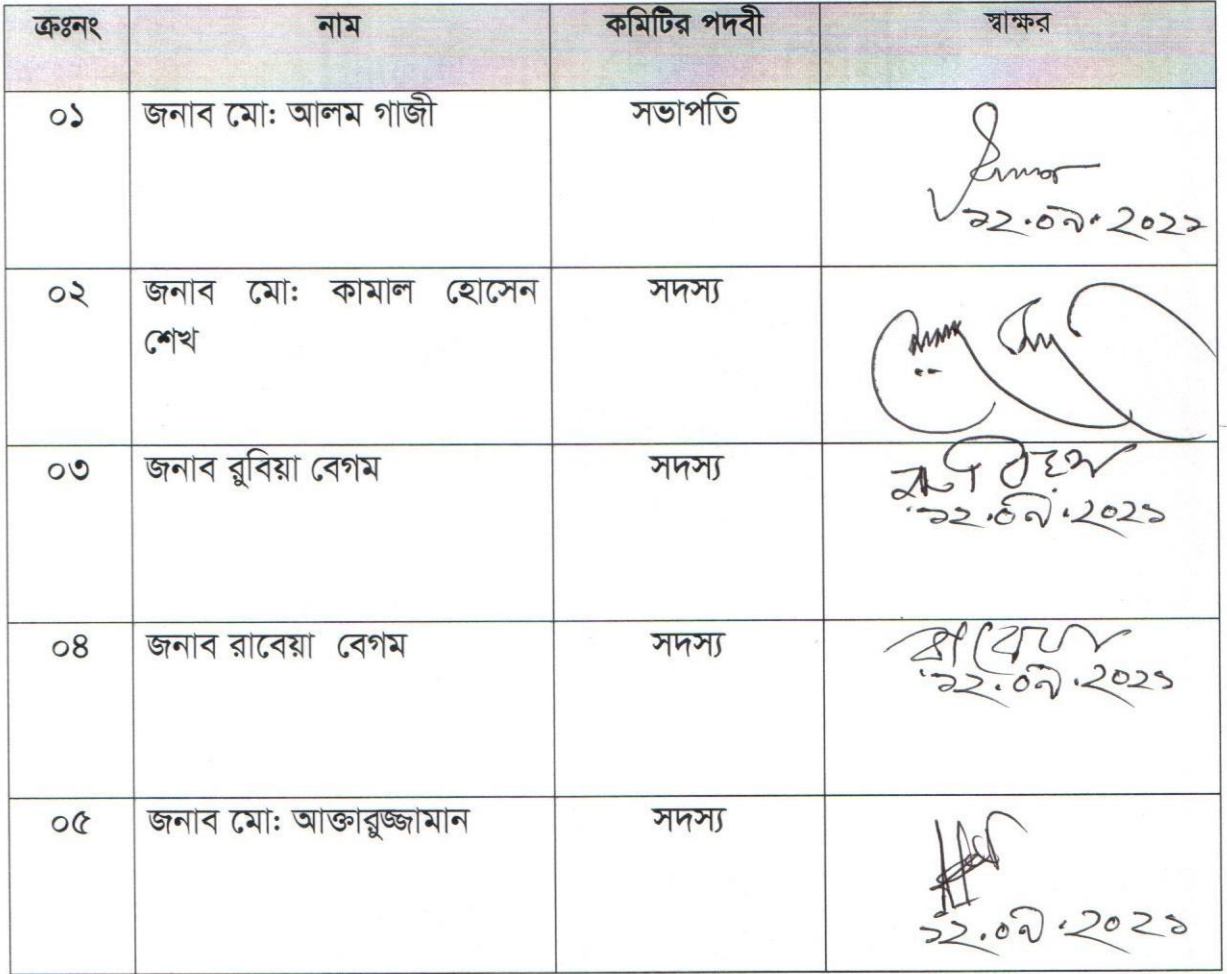 ক্রঃনং নাম কমিটির পদবী স্বাক্ষর
০১ জনাব মো: আলম গাজী সভাপতি
১২.০৯.২০২১
০২ জনাব মো: কামাল হোসেন সদস্য
শেখ
০৩ জনাব রুবিয়া বেগম সদস্য
১২.০৯.২০২১
০৪ জনাব রাবেয়া বেগম সদস্য রাবেয়া
১২.০৯.২০২১
০৫ জনাব মো: আক্তারুজ্জামান সদস্য
১২.০৯.২০২১